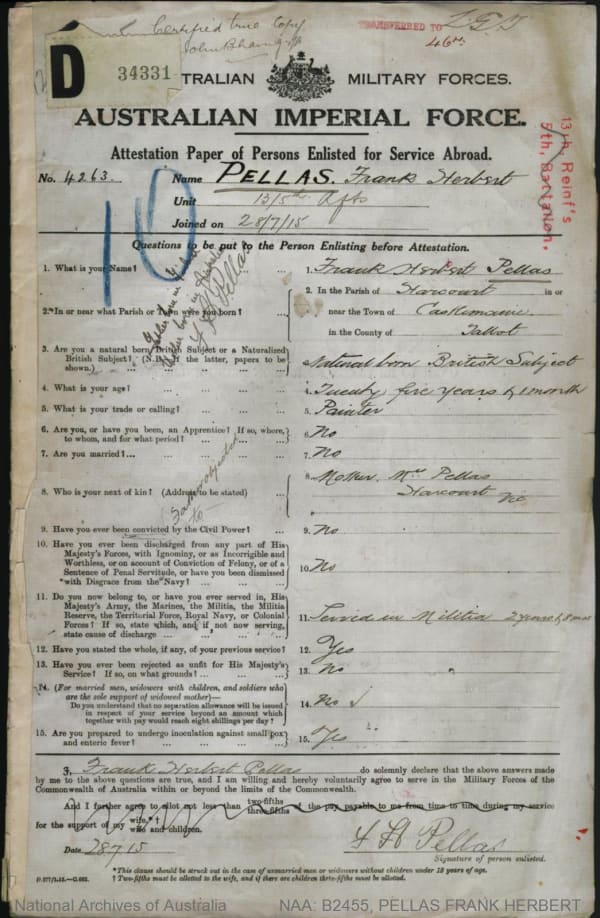 Certified true Copy
TRANSFERRED TO
46th
D
34331
TRALIAN MILITARY FORCES.
AUSTRALIAN IMPERIAL FORCE.
Attestation Paper of Persons Enlisted for Service Abroad.
13th. Reinf's
5th. Battalion.
No. 4263. Name PELLAS. Frank Herbert
Unit 13/5th Rfts
Joined on 28/7/15
Questions to be put to the Person Enlisting before Attestation.
10
Father born in
Mother born in
F H Pellas
1. What is your Name? ... 1. Frank Herbert Pellas
2. In or near what Parish or Town were you born? ... 2. In the Parish of Harcourt in or
near the Town of Castlemaine
in the County of Talbot
3. Are you a natural born British Subject or a Naturalized
British Subject? (N.B.—If the latter, papers to be
shown.) Natural born British Subject
4. What is your age? ... 4. Twenty five years & 1 month
5. What is your trade or calling? ... 5. Painter
6. Are you, or have you been, an Apprentice? If so, where,
to whom, and for what period? 6. No
7. Are you married? ... 7. No
8. Who is your next of kin? (Address to be stated) ... 8. Mother Mrs Pellas
Harcourt Vic
9. Have you ever been convicted by the Civil Power? ... 9. No
10. Have you ever been discharged from any part of His
Majesty's Forces, with Ignominy, or as Incorrigible and
Worthless, or on account of Conviction of Felony, or of a
Sentence of Penal Servitude, or have you been dismissed
with Disgrace from the Navy? ... 10. No
11. Do you now belong to, or have you ever served in, His
Majesty's Army, the Marines, the Militia, the Militia
Reserve, the Territorial Force, Royal Navy, or Colonial
Forces? If so, state which, and if not now serving,
state cause of discharge ... 11. Served in Militia 2 years & 8 mos
12. Have you stated the whole, if any, of your previous service? 12. Yes
13. Have you ever been rejected as unfit for His Majesty's
Service? If so, on what grounds? ... 13. No
14. (For married men, widowers with children, and soldiers who
are the sole support of widowed mother)—
Do you understand that no separation allowance will be issued
in respect of your service beyond an amount which
together with pay would reach eight shillings per day? 14. No
15. Are you prepared to undergo inoculation against small pox
and enteric fever? ... 15. Yes
I, Frank Herbert Pellas do solemnly declare that the above answers made
by me to the above questions are true, and I am willing and hereby voluntarily agree to serve in the Military Forces of the
Commonwealth of Australia within or beyond the limits of the Commonwealth.
And I further agree to allot not less than two-fifths three-fifths of the pay payable to me from time to time during my service
for the support of my wife,*†
wife and children.
Date 28 7 15
F H Pellas
Signature of person enlisted.
*This clause should be struck out in the case of unmarried men or widowers without children under 18 years of age.
† Two-fifths must be allotted to the wife, and if there are children three-fifths must be allotted.
National Archives of Australia
NAA: B2455, PELLAS FRANK HERBERT